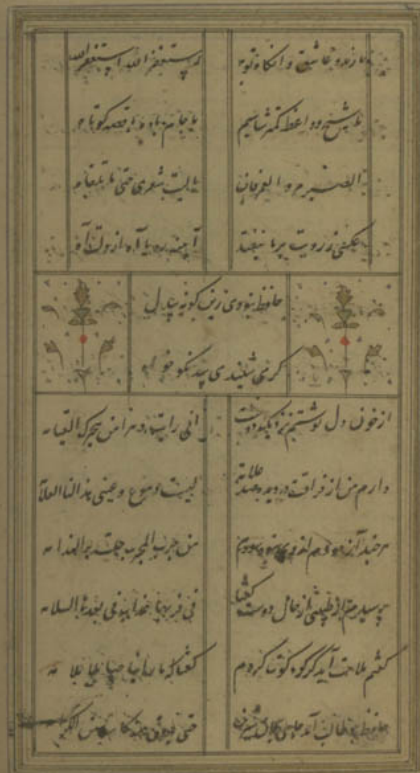 ما رند و عاشق و آنگاه توبه استغفر الله استغفر الله
ما شیخ و واعظ کمتر شناسیم یا جام باده یا قصه کوتاه
الصبر مر و العمر فان یا لیت شعری حتی م القاه
عکسی ز رویت بر ما نیفتد آیینه رویا آه از دلت آه
حافظ نبودی زین گونه بیدل
گر می شنیدی پند نکوخواه
از خون دل نوشتم نزدیک دوست نامه انی رایت دهرا من هجرک القیامه
دارم من از فراقت در دیده صد علامه لیست دموع عینی هذا لنا العلامه
هر چند آزمودم از وی نبود سودم من جرب المجرب حلت به الندامه
پرسیدم از طبیبی از حال دوست گفتا فی قربها عذاب فی بعدها السلامه
گفتم ملامت آید گر گرد کوت گردم گفتا که ما راینا حبا بلا ملامه
حافظ چو طالب آمد جامی بجان شیرین حتی یذوق منه کاسا من الکرامه